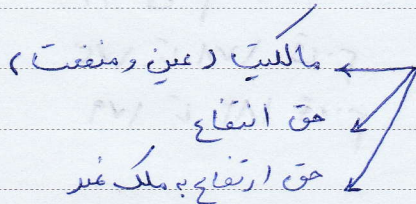 مالکیت (عین و منفعت)
حق انتفاع
حق ارتفاع به ملک غیر